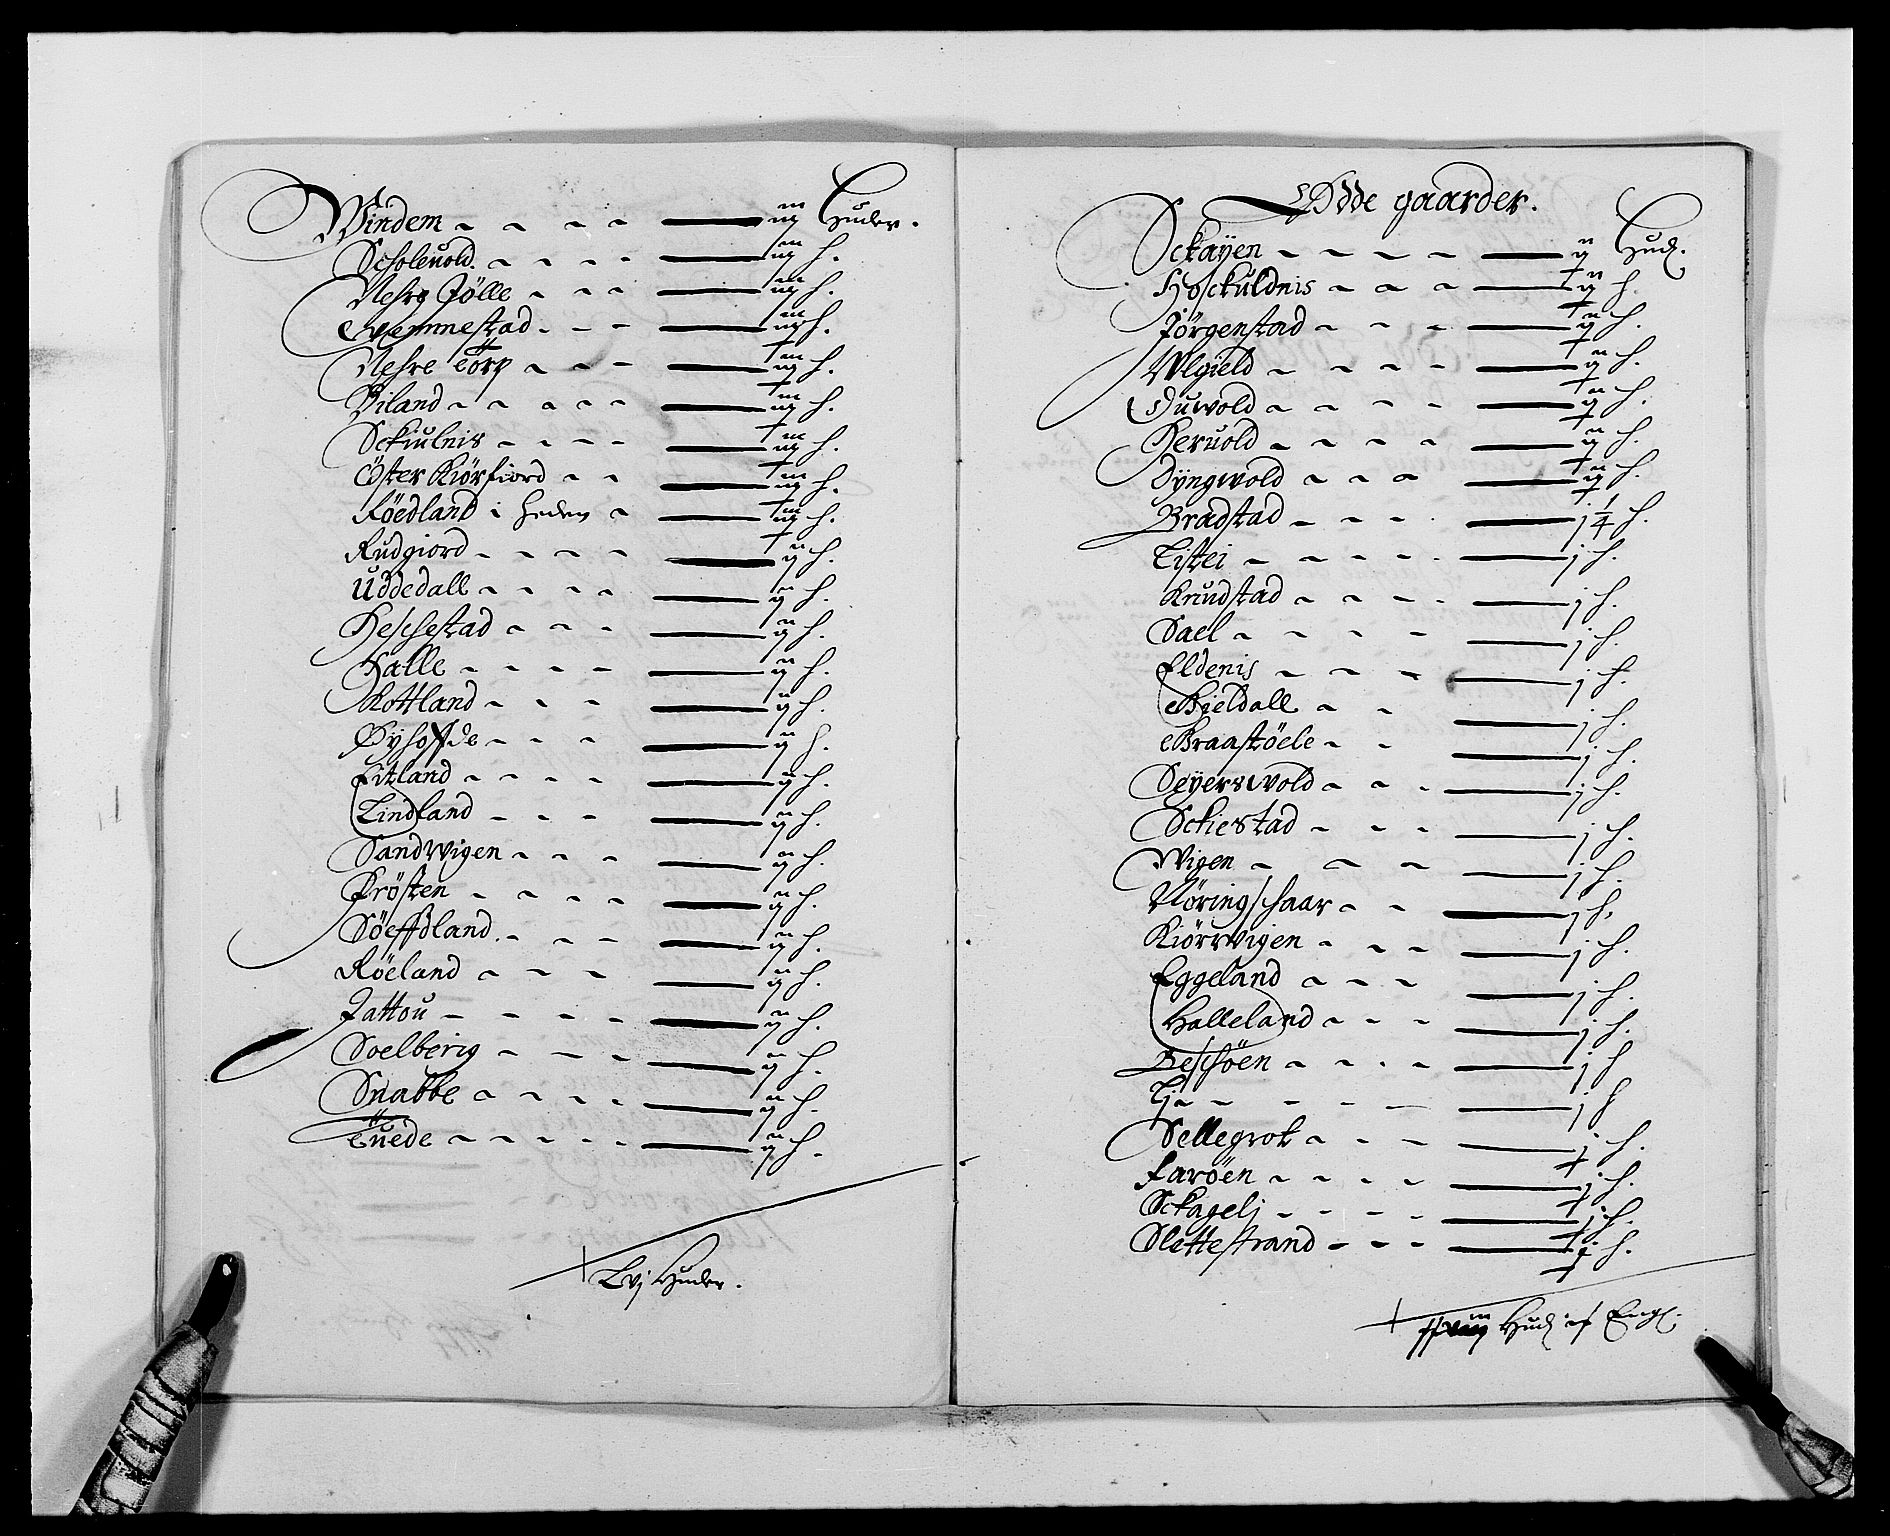 Windem - - - - iij Huder.
Scholeuold. - - - - iij h.
Nehre Jölle - - - iij h.
Wemmestad. - - - iij h.
Nehre Törp - - - iij h.
Viland - - - - - iij h.
Sckiulnis - - - - iij h.
Öster Kiörfiord - - iij h.
Röedland i heden - iij h.
Rudgiord - - - - ij h.
Uddedall - - - - ij h.
Heschestad - - - ij h.
Halle - - - - ij h.
Kottland - - - ij h.
Øyhoffde - - - ij h.
Eitland - - - - ij h.
Lindland - - - ij h.
Sandwigen - - - ij h.
Frösten - - - - ij h.
Söeffdland. - - - ij h.
Röeland - - - ij h.
Jattou - - - - ij h.
Soelberig - - - ij h.
Snabbe - - - - ij h.
Tuede - - - - - ij h.
Lvj Huder.
Ödde gaarder.
Sckayen - - - - ij Hud.
Hosckuldnis - - - ij h.
Jörgenstad - - - ij h.
Ulgield - - - - ij h.
Duwold - - - - ij h.
Heruold - - - - ij h.
Dyngwold - - - ij h.
Bradstad - - - - j 1/4 h.
Tistei - - - - - j h.
Knudstad - - - - j h.
Sael - - - - j h.
Eldenis - - - - j h.
Bieldall - - j h.
Braastöele - - j h.
Seyerswold - - - j h.
Sckiestad - - - j h.
Wigen - - - j h.
Nöringschaar - - j h.
Kiörrwigen - - - j h.
Eggeland - - - j h.
Halleland - - - j h.
Beschöen - - - - j h
Tj - - - - - j h
Sellegrot - - - j h.
Faröen - - - - j h.
Sckagelj - - - - j h.
Slettestrand - - - j h.
Hud af Engl.